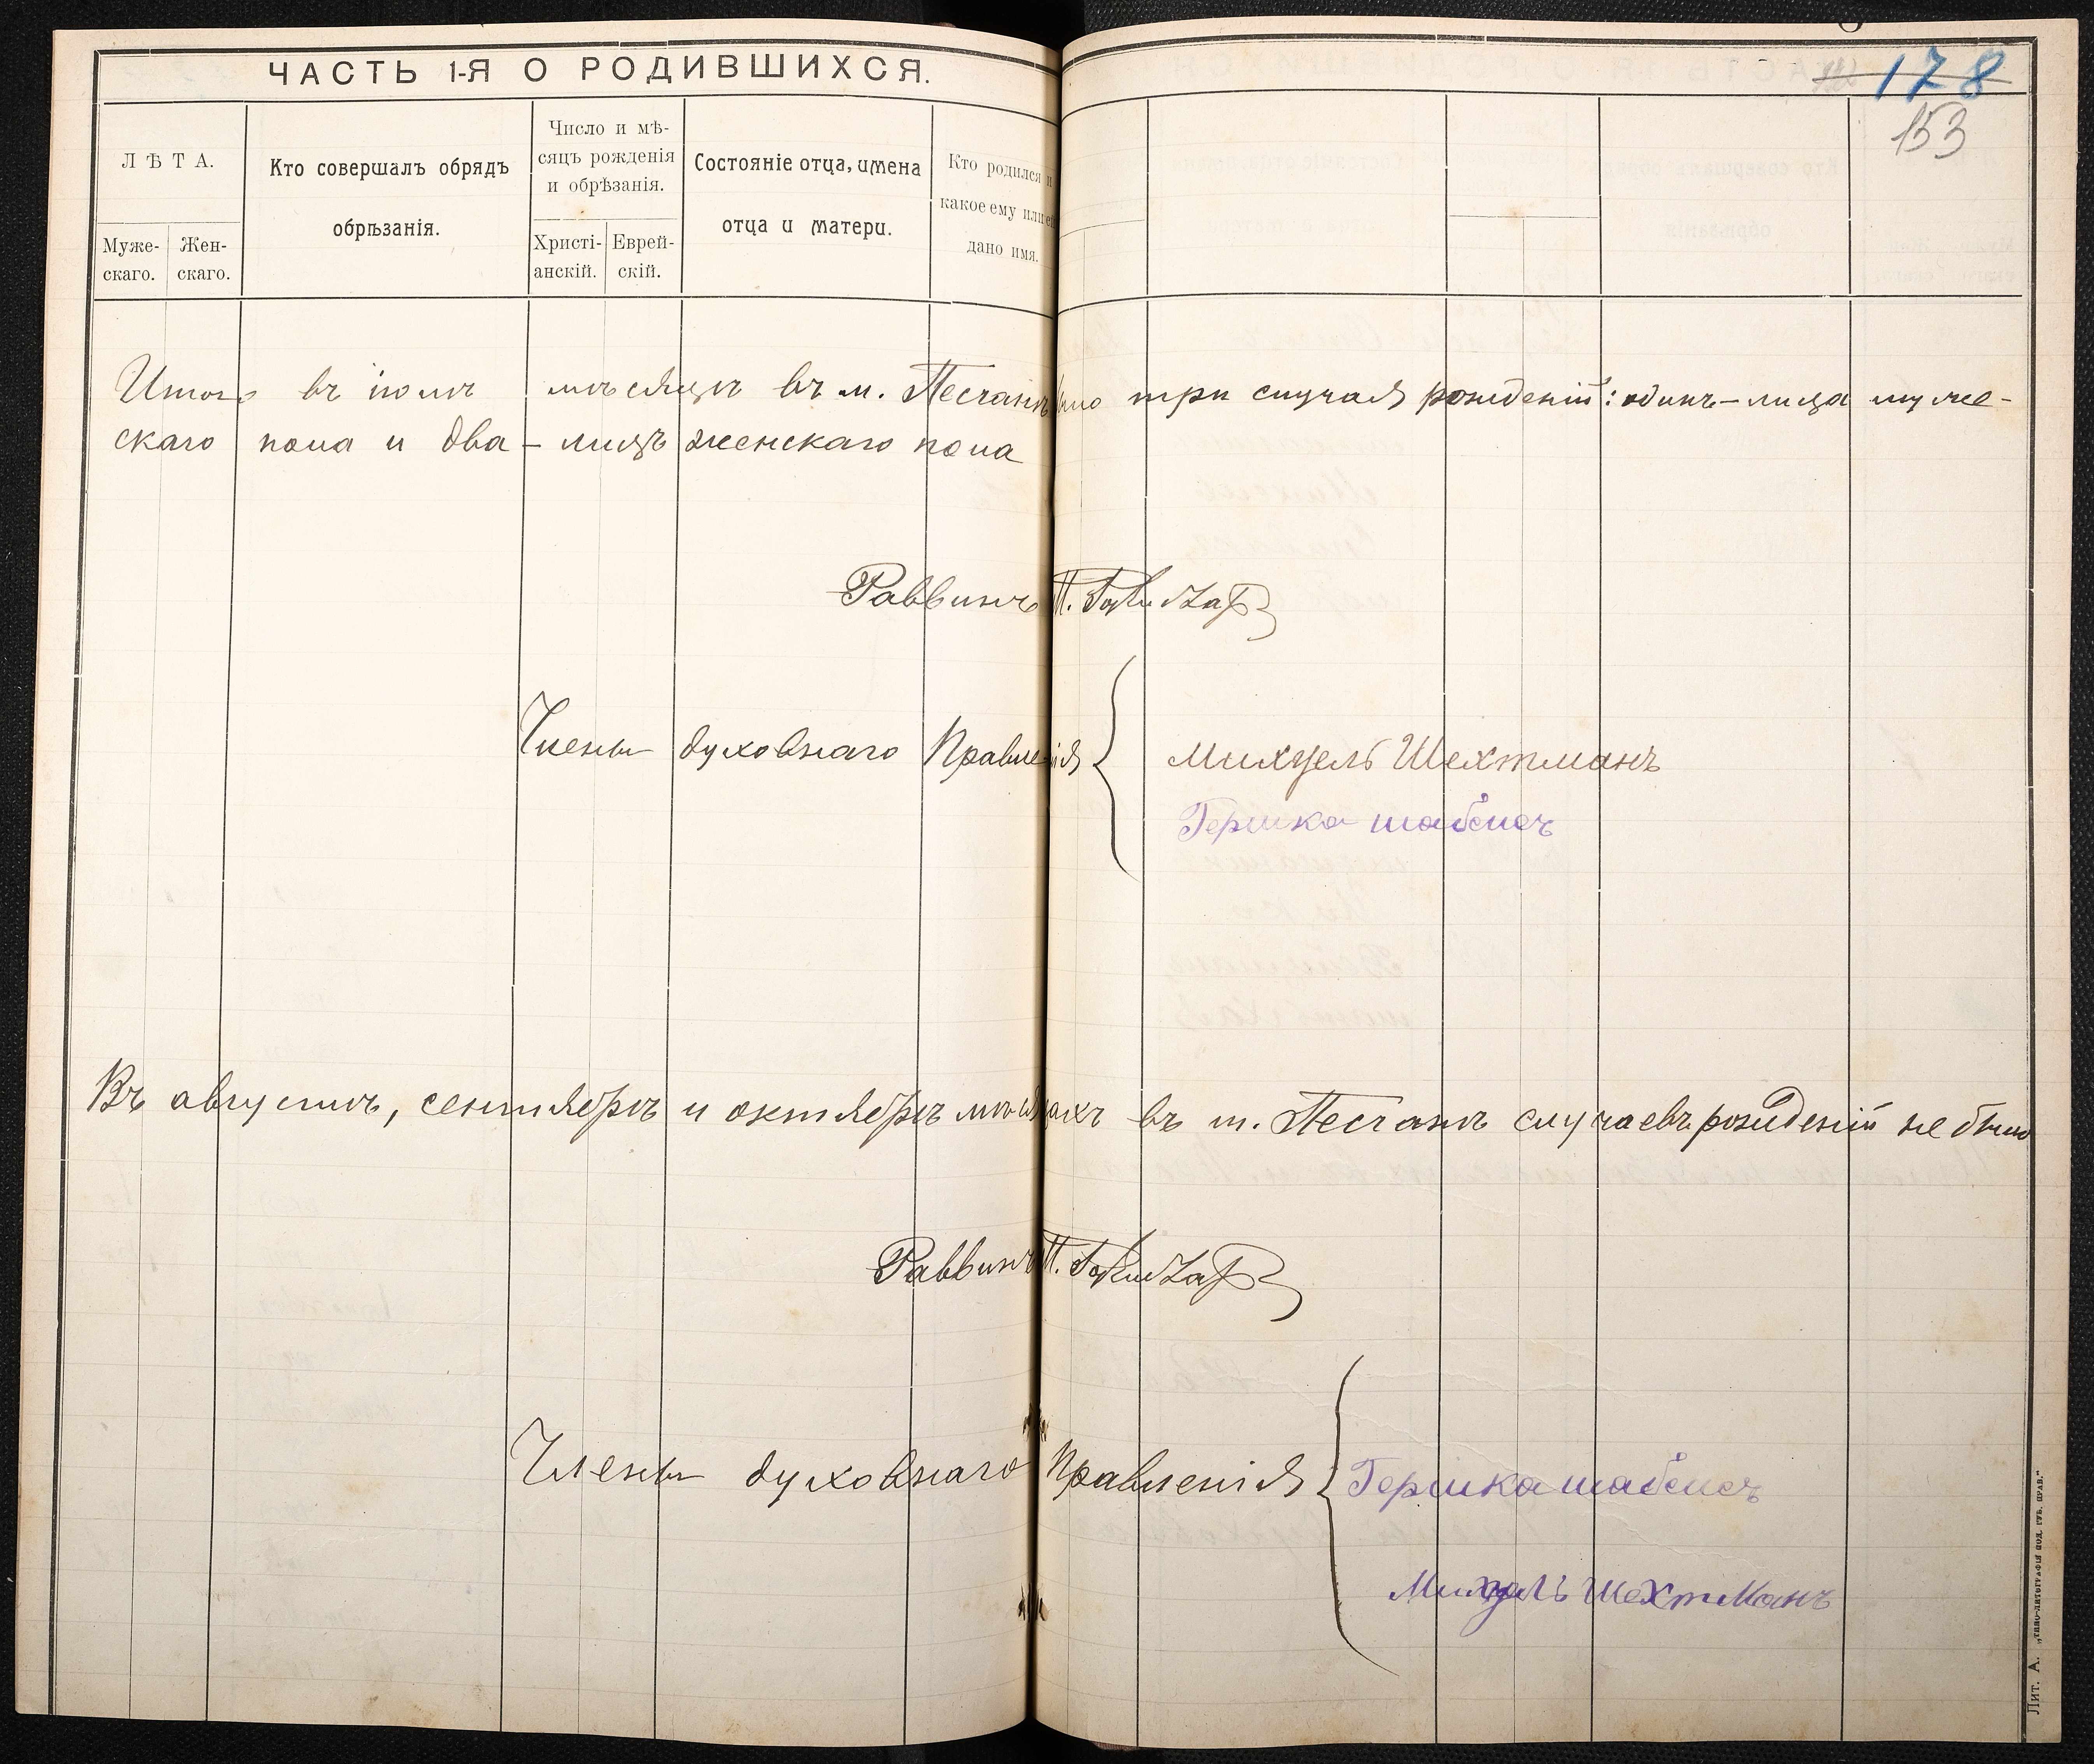 ЧАСТЬ 1-Я О РОДИВШИХСЯ.
178
153
ЛѢТА.
Муже-
скаго.
Жен-
скаго.
Кто совершалъ обрядъ
обрѣзанія.
Число и мѣ-
сяцъ рожденія
и обрѣзанія.
Христі-
анскій.
Еврей-
скій.
Состояніе отца, имена
отца и матери.
Кто родился и
какое ему или ей
дано имя.
Итого въ іюлѣ мѣсяцѣ въ м. Песчанѣ было три случая рожденій: одинъ – лица муже-
скаго пола и два – лицъ женскаго пола
Раввинъ П.
Члены духовнаго Правленія
Михуель Шехтманъ
Гершко
Въ августѣ, сентябрѣ и октябрѣ мѣсяцахъ въ м. Песчанѣ случаевъ рожденій не было
Раввинъ П.
Члены духовнаго Правленія
Гершко
Михуель Шехтманъ
Лит. А. „Типо-литографія Под. Губ. Прав."